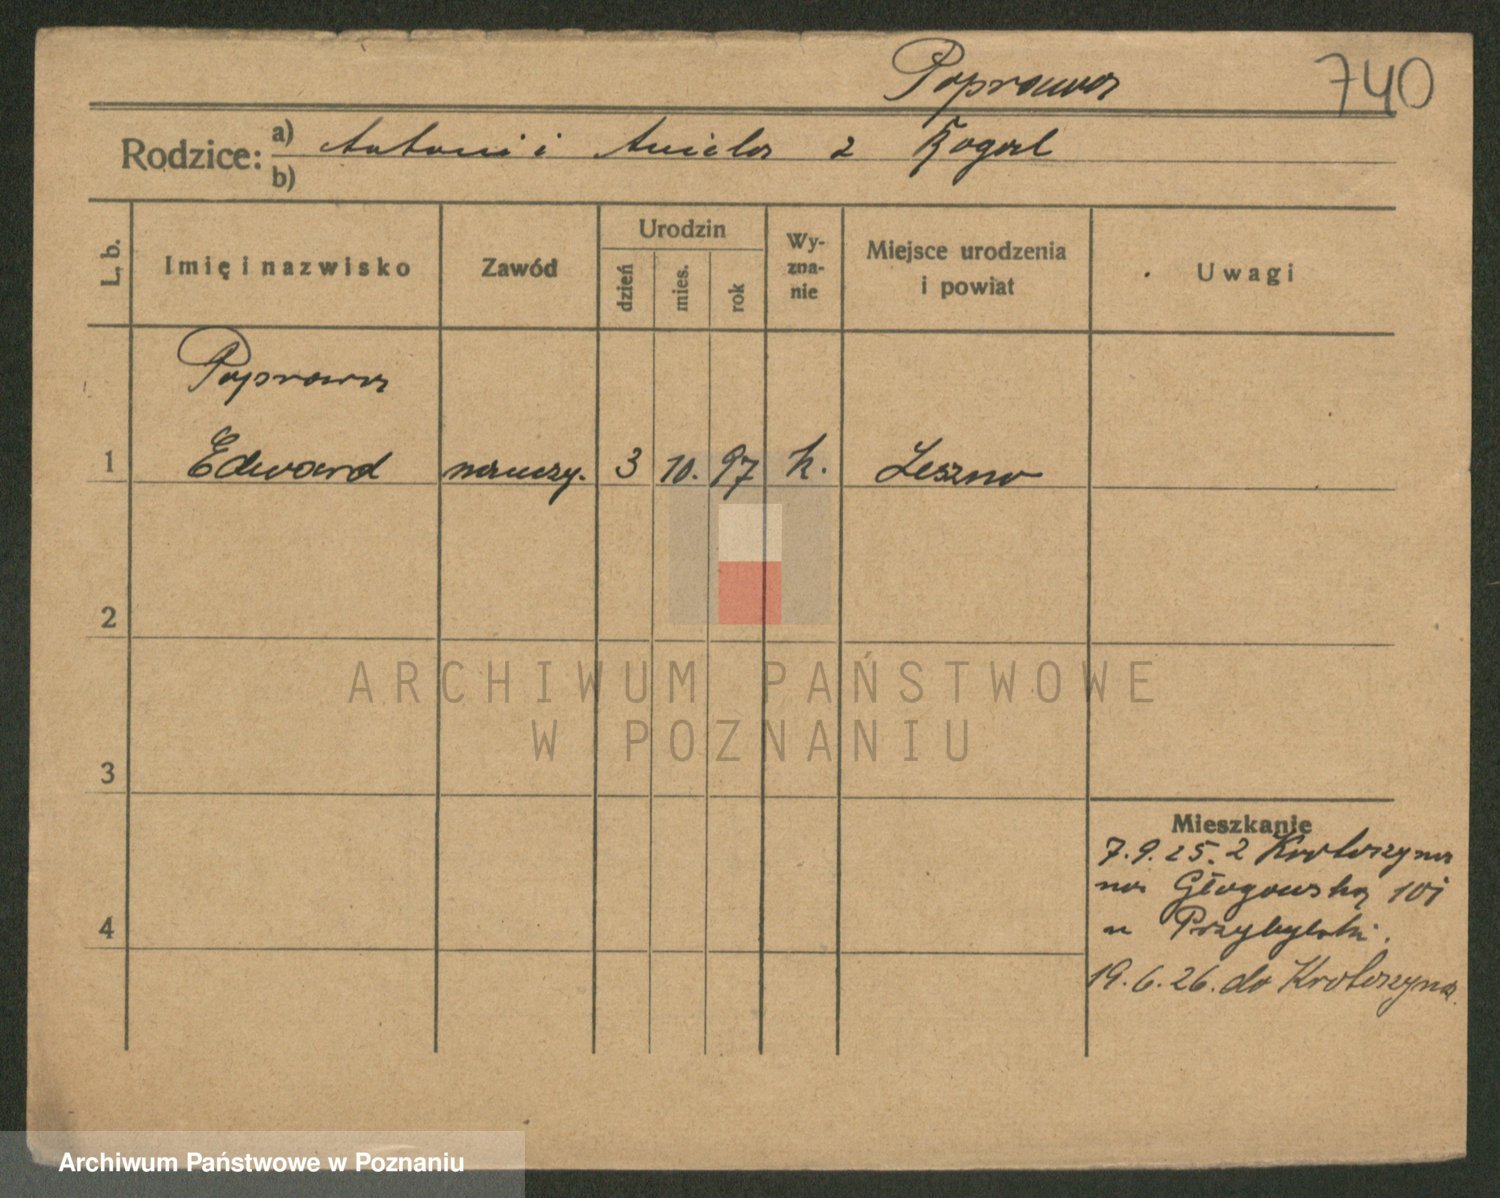 Poprawa 740
Rodzice: a) Antoni i Aniela z
b)
L. b.
Imię i nazwisko
Zawód
Urodzin
dzień
mies.
rok
Wy-
zna-
nie
Miejsce urodzenia
i powiat
Uwagi
Poprawa
1 Edward nauczy. 3 10. 97 k. Leszno
2
3
4
Mieszkanie
7.9.25. z Krotoszyna
na Głogowską 101
u Przybylski.
19.6.26. do Krotoszyna.
ARCHIWUM PAŃSTWOWE
W POZNANIU
Archiwum Państwowe w Poznaniu